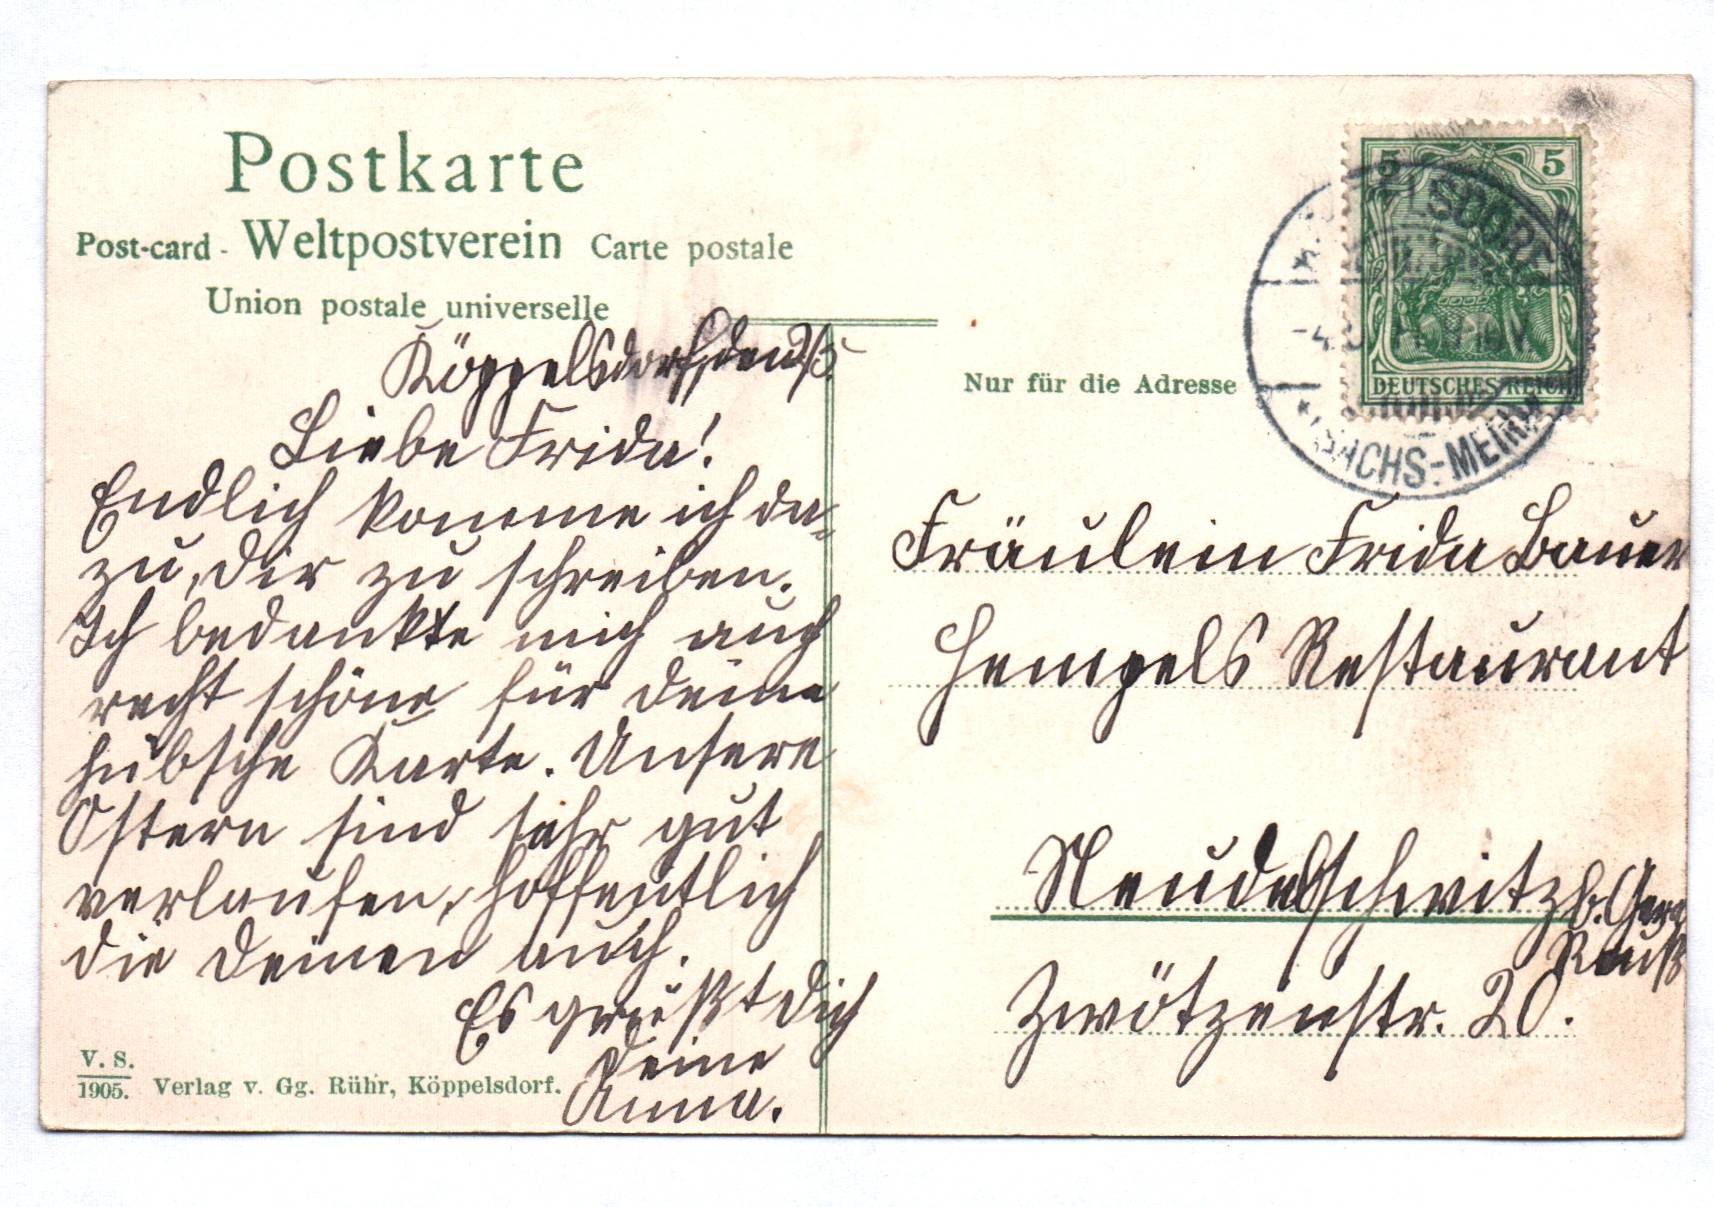 Postkarte
Post-card - Weltpostverein Carte postale
Union postale universelle
Köppelsdorf, den
Liebe Frida!
Endlich komme ich da-
zu, Dir zu schreiben.
Ich bedankte mich auch
recht schöne für deine
hübsche Karte. Unsere
Ostern sind sehr gut
verlaufen, hoffentlich
die Deinen auch.
Es grüßt Dich
Deine
Anna.
V. S.
1905. Verlag v. Gg. Rühr, Köppelsdorf.
5 5
DEUTSCHES REICH
SACHS.-MEIN
Nur für die Adresse
Fräulein Frida Bauer
Hempels Restaurant
b. Gera
Reuß
Zwötzenstr. 20.